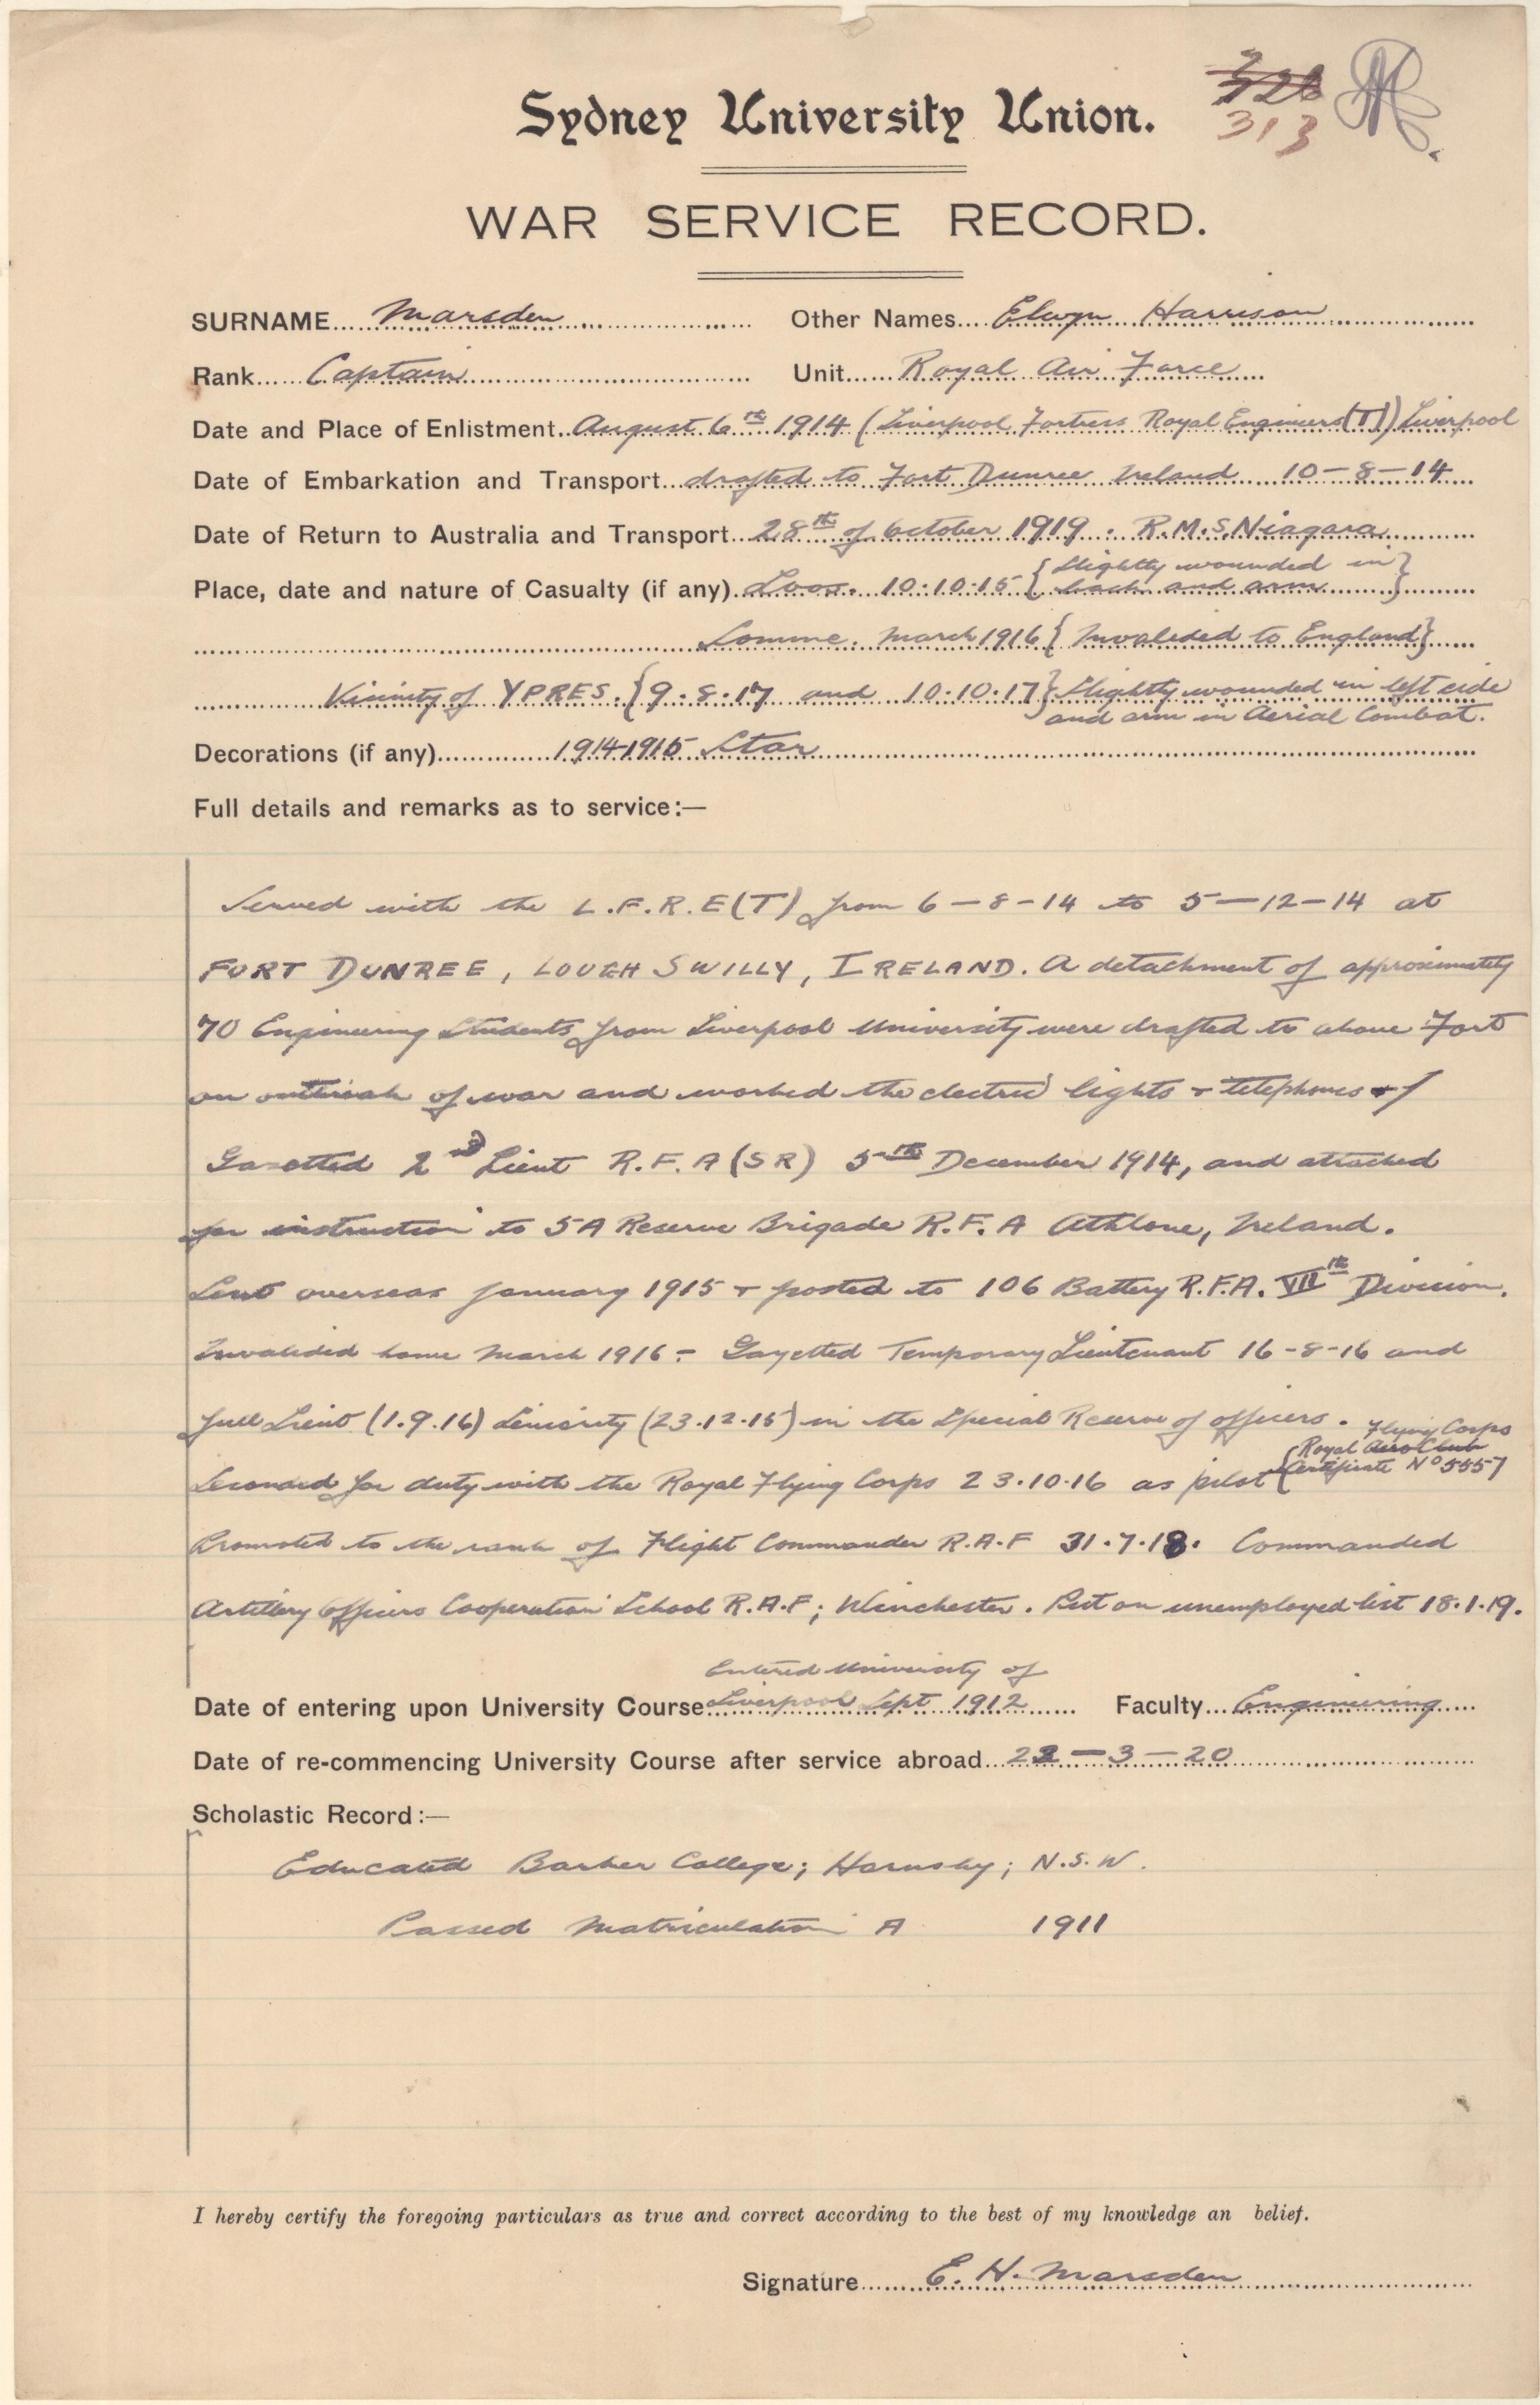 Sydney University Union.
313
WAR SERVICE RECORD.
SURNAME Marsden Other Names Elwyn Harrison
Rank Captain Unit Royal Air Force
Date and Place of Enlistment August 6th 1914 (Liverpool Fortress Royal Engineers (T)) Liverpool
Date of Embarkation and Transport drafted to Fort Dunree Ireland 10-8-14
Date of Return to Australia and Transport 28th of October 1919. R.M.S. Niagara
Place, date and nature of Casualty (if any) Loos. 10.10.15 { Slightly wounded in
back and arm }
Somme. March 1916 { Invalided to England }
Vicinity of YPRES. { 9.8.17 and 10.10.17 } Slightly wounded in left side
and arm in Aerial Combat.
Decorations (if any) 1914 1915 Star
Full details and remarks as to service:—
Served with the L.F.R.E(T) from 6-8-14 to 5-12-14 at
FORT DUNREE, LOUGH SWILLY, IRELAND. A detachment of approximately
70 Engineering Students from Liverpool University were drafted to above Fort
on outbreak of war and worked the electric lights + telephones
Gazetted 2nd Lieut R.F.A (SR) 5th December 1914, and attached
for instruction to 5A Reserve Brigade R.F.A Athlone, Ireland.
Sent overseas January 1915 + posted to 106 Battery R.F.A. VIIth Division.
Invalided home March 1916 - Gazetted Temporary Lieutenant 16-8-16 and
full Lieut (1.9.16) Seniority (23.12.15) in the Special Reserve of officers.
Flying Corps
Royal Aero Club
Seconded for duty with the Royal Flying Corps 23.10.16 as pilot { Certificate No 5557
Promoted to the rank of Flight Commander R.A.F 31.7.18. Commanded
Artillery Officers Cooperation School R.A.F; Winchester. Put on unemployed list 18.1.19.
Entered University of
Date of entering upon University Course Liverpool Sept 1912 Faculty Engineering
Date of re-commencing University Course after service abroad 22-3-20
Scholastic Record:—
Educated Barker College; Hornsby; N.S.W.
Passed Matriculation A 1911
I hereby certify the foregoing particulars as true and correct according to the best of my knowledge an belief.
Signature E. H. Marsden